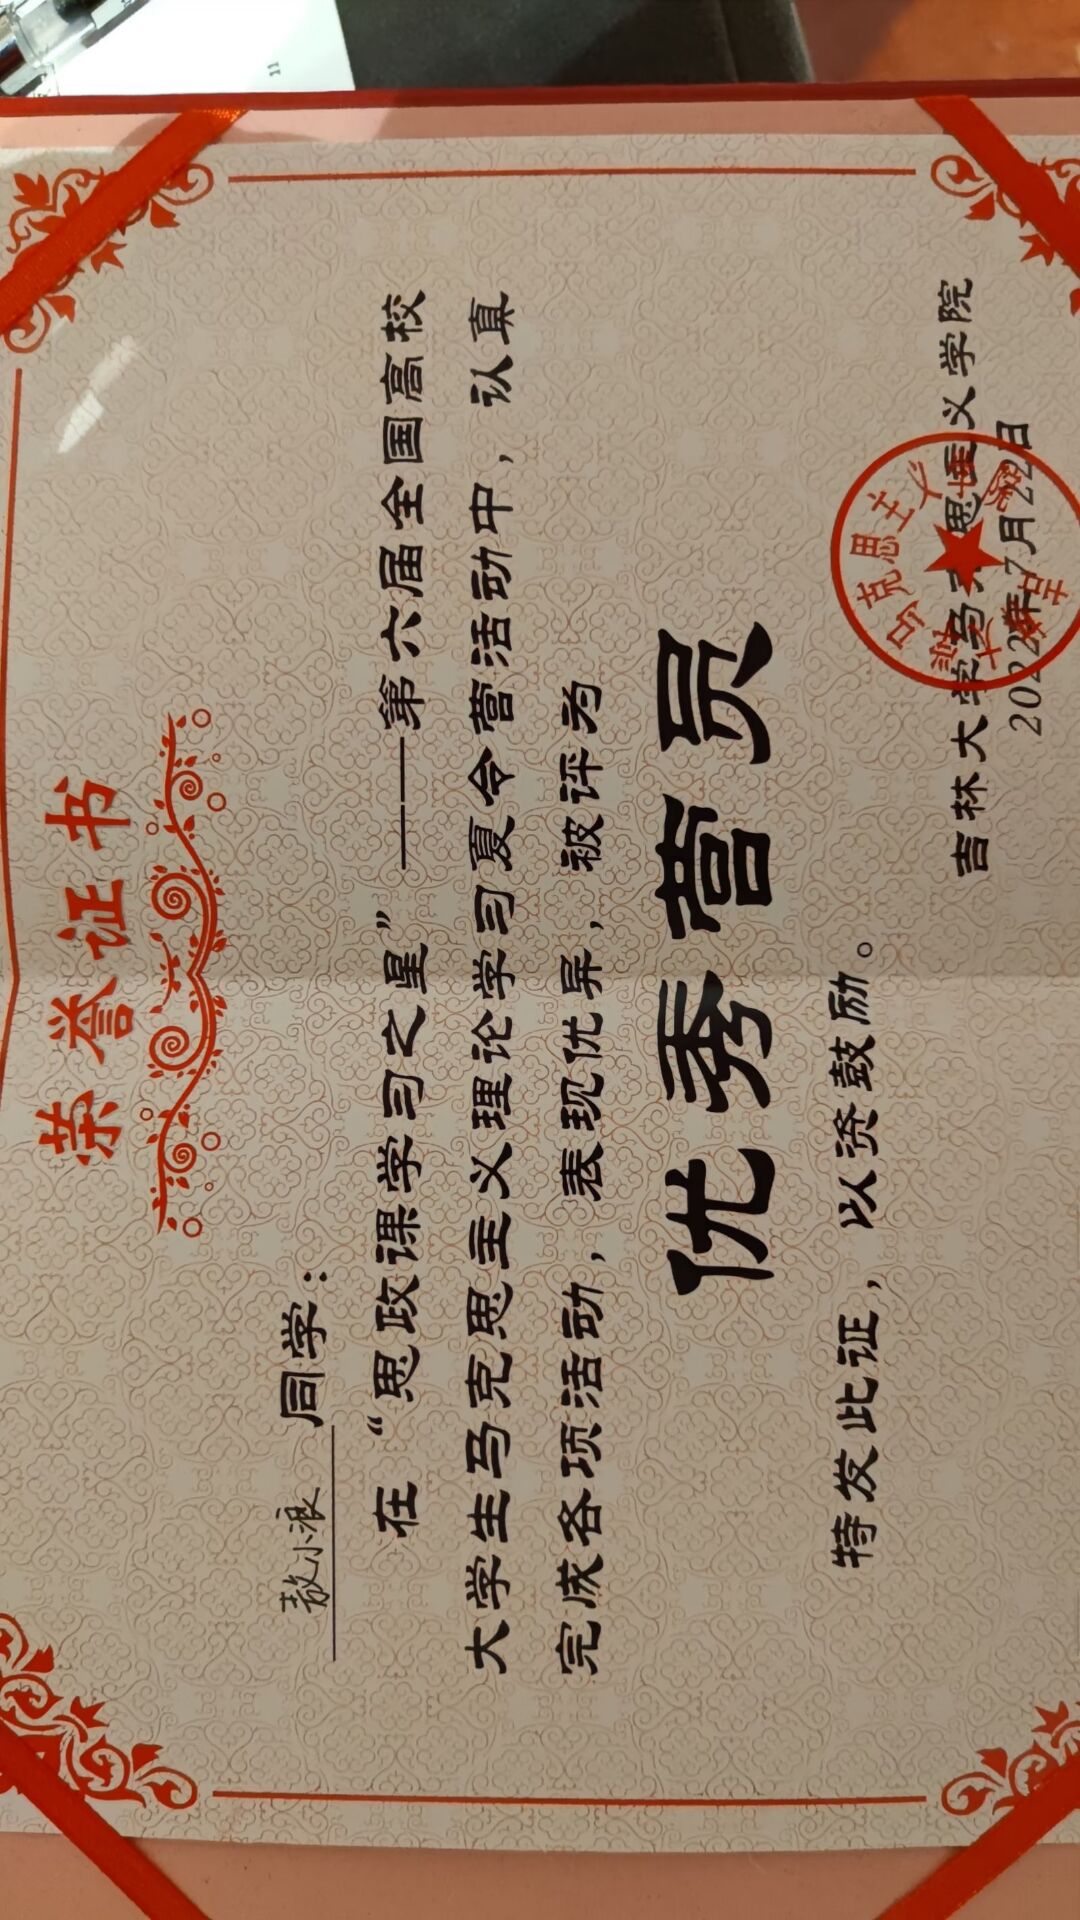 荣誉证书
敖小浪 同学：
在“思政课学习之星”——第六届全国高校
大学生马克思主义理论学习夏令营活动中，认真
完成各项活动，表现优异，被评为
优秀营员
特发此证，以资鼓励。
吉林大学马克思主义学院
2022年7月22日
11